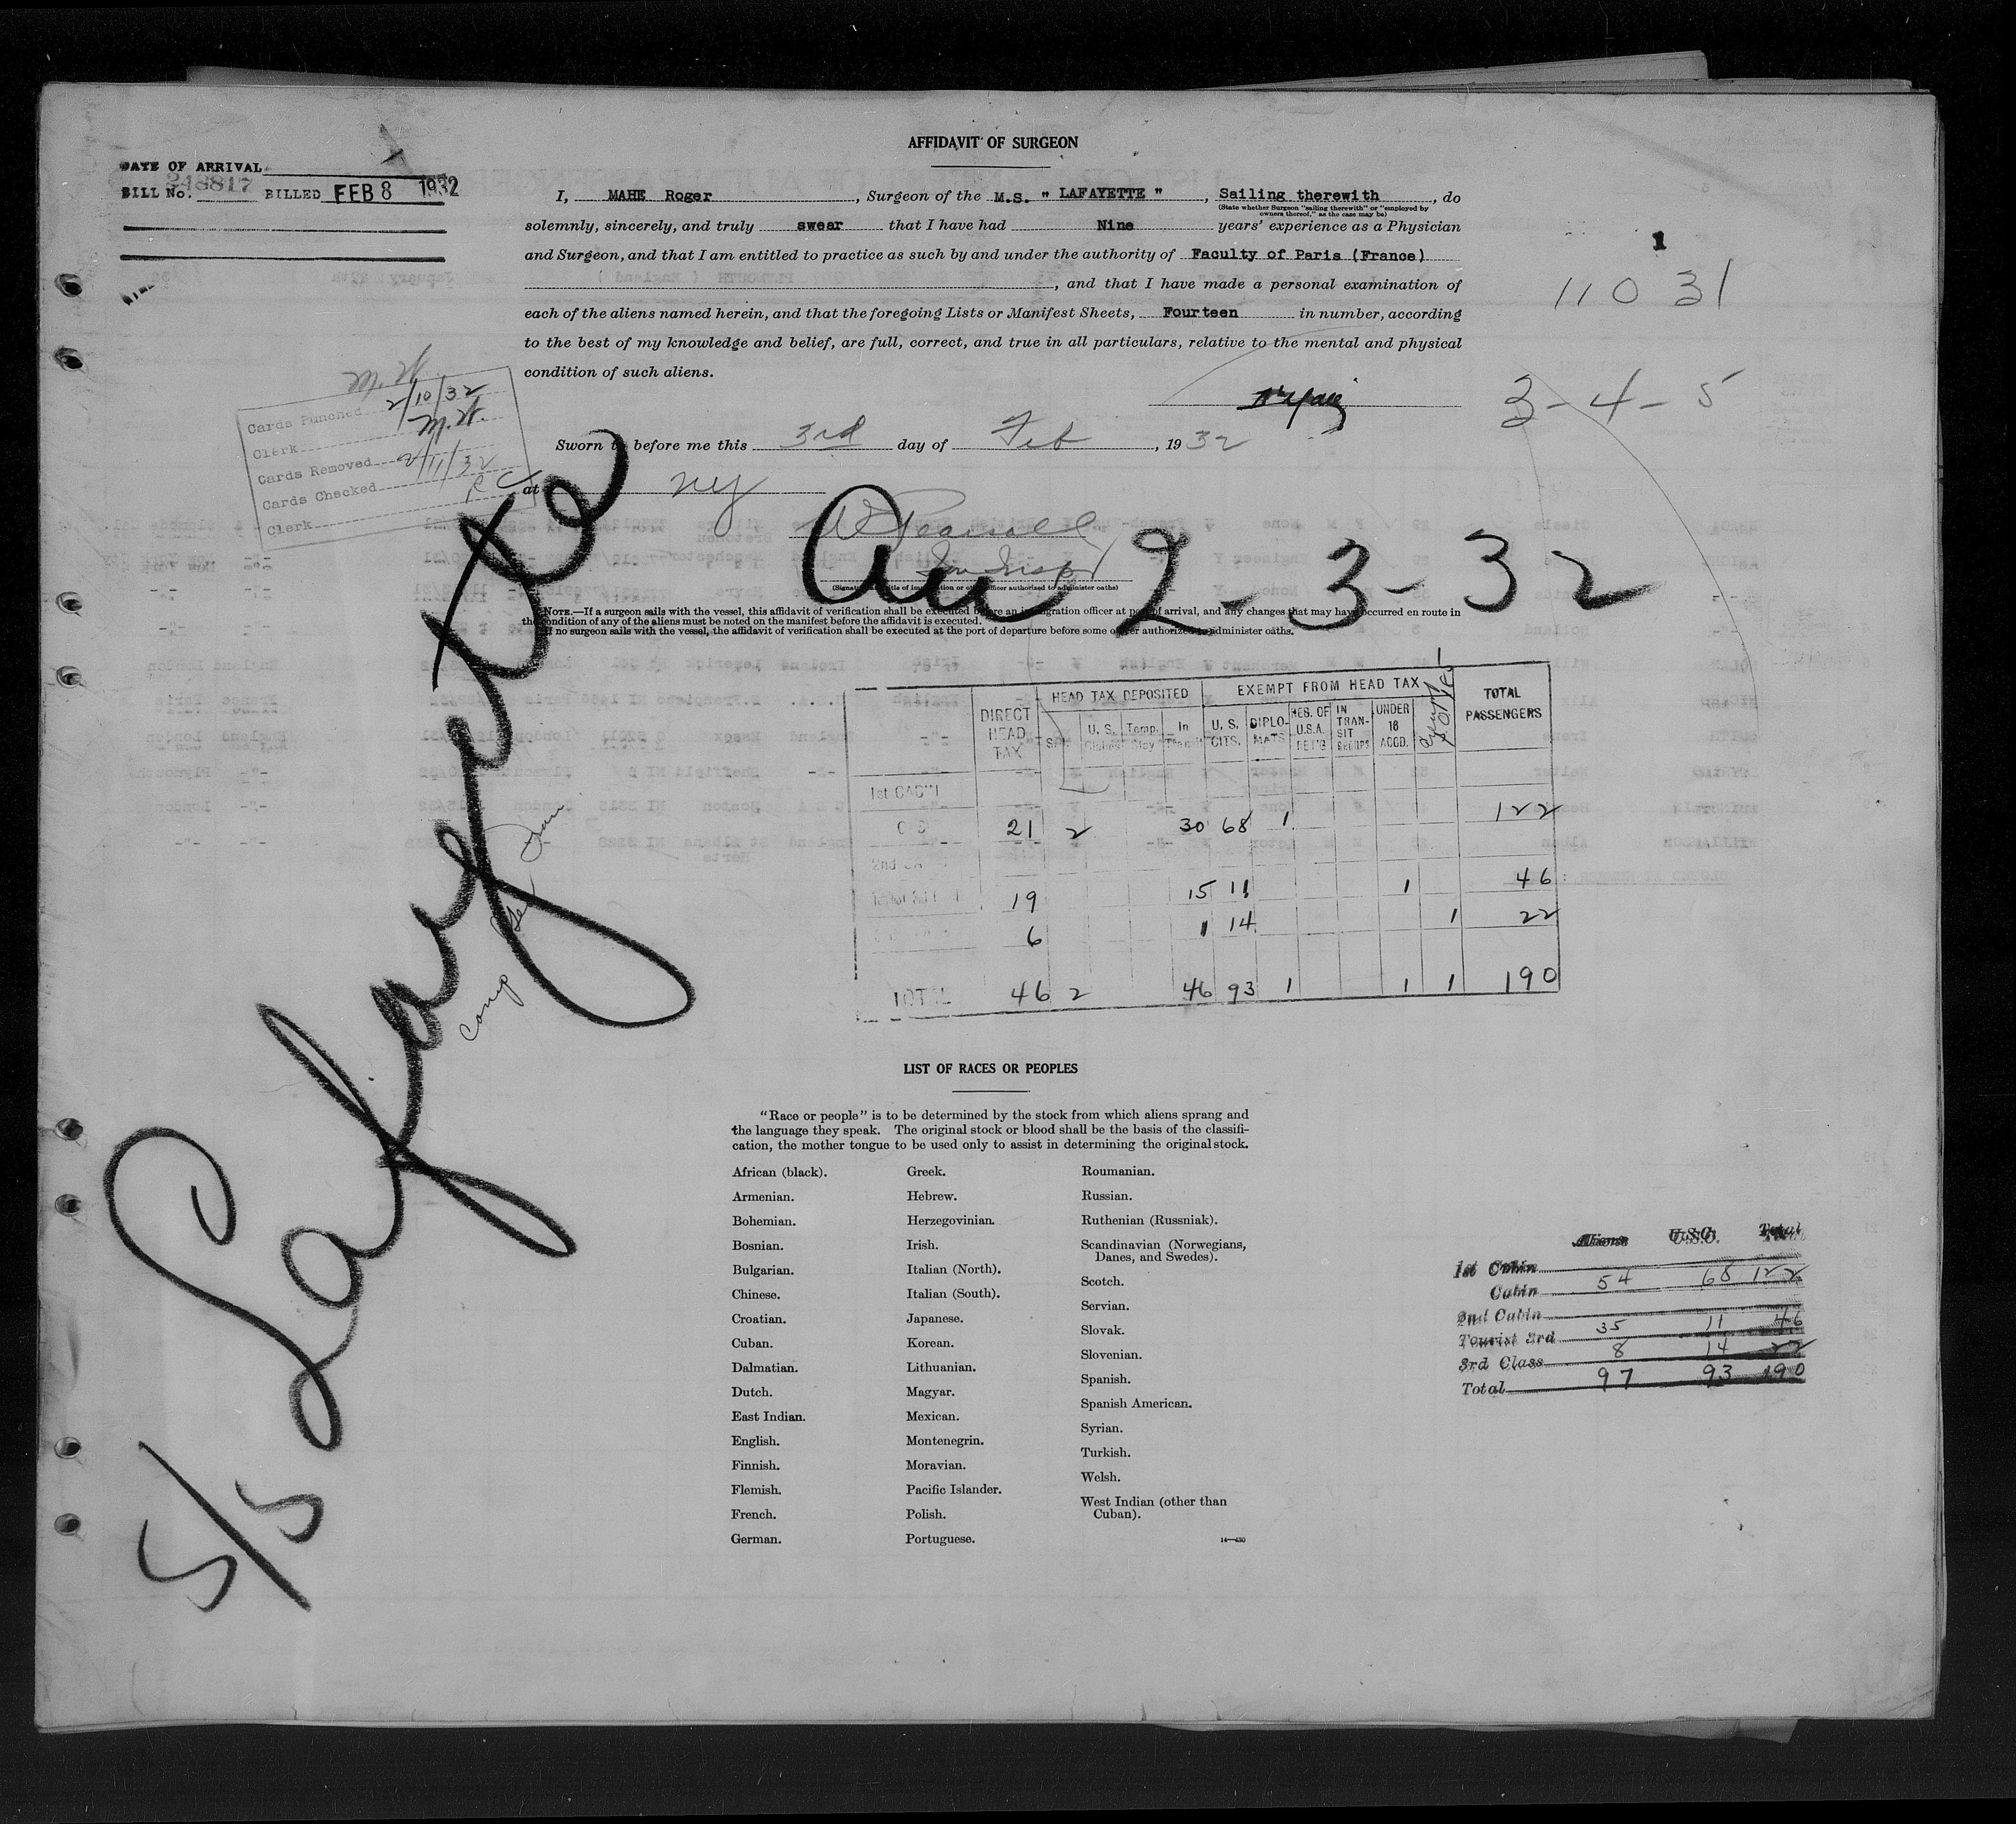 AFFIDAVIT OF SURGEON
DATE OF ARRIVAL
BILL No. 248817 BILLED FEB 8 1932
I, MAHE Roger, Surgeon of the M.S. " LAFAYETTE ", Sailing therewith, do
(State whether Surgeon "sailing therewith" or "employed by
owners thereof," as the case may be)
solemnly, sincerely, and truly swear that I have had Nine years' experience as a Physician
and Surgeon, and that I am entitled to practice as such by and under the authority of Faculty of Paris (France)
, and that I have made a personal examination of
each of the aliens named herein, and that the foregoing Lists or Manifest Sheets, Fourteen in number, according
to the best of my knowledge and belief, are full, correct, and true in all particulars, relative to the mental and physical
condition of such aliens.
1
11031
3-4-5
M.W.
Cards Punched 2/10/32
Clerk M.W.
Cards Removed 2/11/32
Cards Checked RC
Clerk
Sworn to before me this 3rd day of Feb, 1932
at ny
W Pearsall
Imm Inspr
(Signature and title of immigration or other officer authorized to administer oaths)
Arr 2-3-32
NOTE.—If a surgeon sails with the vessel, this affidavit of verification shall be executed before an immigration officer at port of arrival, and any changes that may have occurred en route in
the condition of any of the aliens must be noted on the manifest before the affidavit is executed.
If no surgeon sails with the vessel, the affidavit of verification shall be executed at the port of departure before some officer authorized to administer oaths.
S/S Lafayette
DIRECT HEAD TAX HEAD TAX DEPOSITED EXEMPT FROM HEAD TAX TOTAL PASSENGERS
U. S. Temp. Stay In Transit U. S. CITS. DIPLOMATS RES. OF U.S.A. RET'G IN TRANSIT GROUPS UNDER 16 ACCD.
1st CAB
21 2 30 68 1 122
2nd
19 15 11 1 46
6 1 14 1 22
TOTAL 46 2 46 93 1 1 1 190
LIST OF RACES OR PEOPLES
"Race or people" is to be determined by the stock from which aliens sprang and
the language they speak. The original stock or blood shall be the basis of the classifi-
cation, the mother tongue to be used only to assist in determining the original stock.
African (black).
Armenian.
Bohemian.
Bosnian.
Bulgarian.
Chinese.
Croatian.
Cuban.
Dalmatian.
Dutch.
East Indian.
English.
Finnish.
Flemish.
French.
German.
Greek.
Hebrew.
Herzegovinian.
Irish.
Italian (North).
Italian (South).
Japanese.
Korean.
Lithuanian.
Magyar.
Mexican.
Montenegrin.
Moravian.
Pacific Islander.
Polish.
Portuguese.
Roumanian.
Russian.
Ruthenian (Russniak).
Scandinavian (Norwegians,
Danes, and Swedes).
Scotch.
Servian.
Slovak.
Slovenian.
Spanish.
Spanish American.
Syrian.
Turkish.
Welsh.
West Indian (other than
Cuban).
14—430
Aliens U.S.C. Total
1st Cabin
Cabin 54 68 122
2nd Cabin
Tourist 3rd 35 11 46
3rd Class 8 14 22
Total 97 93 190